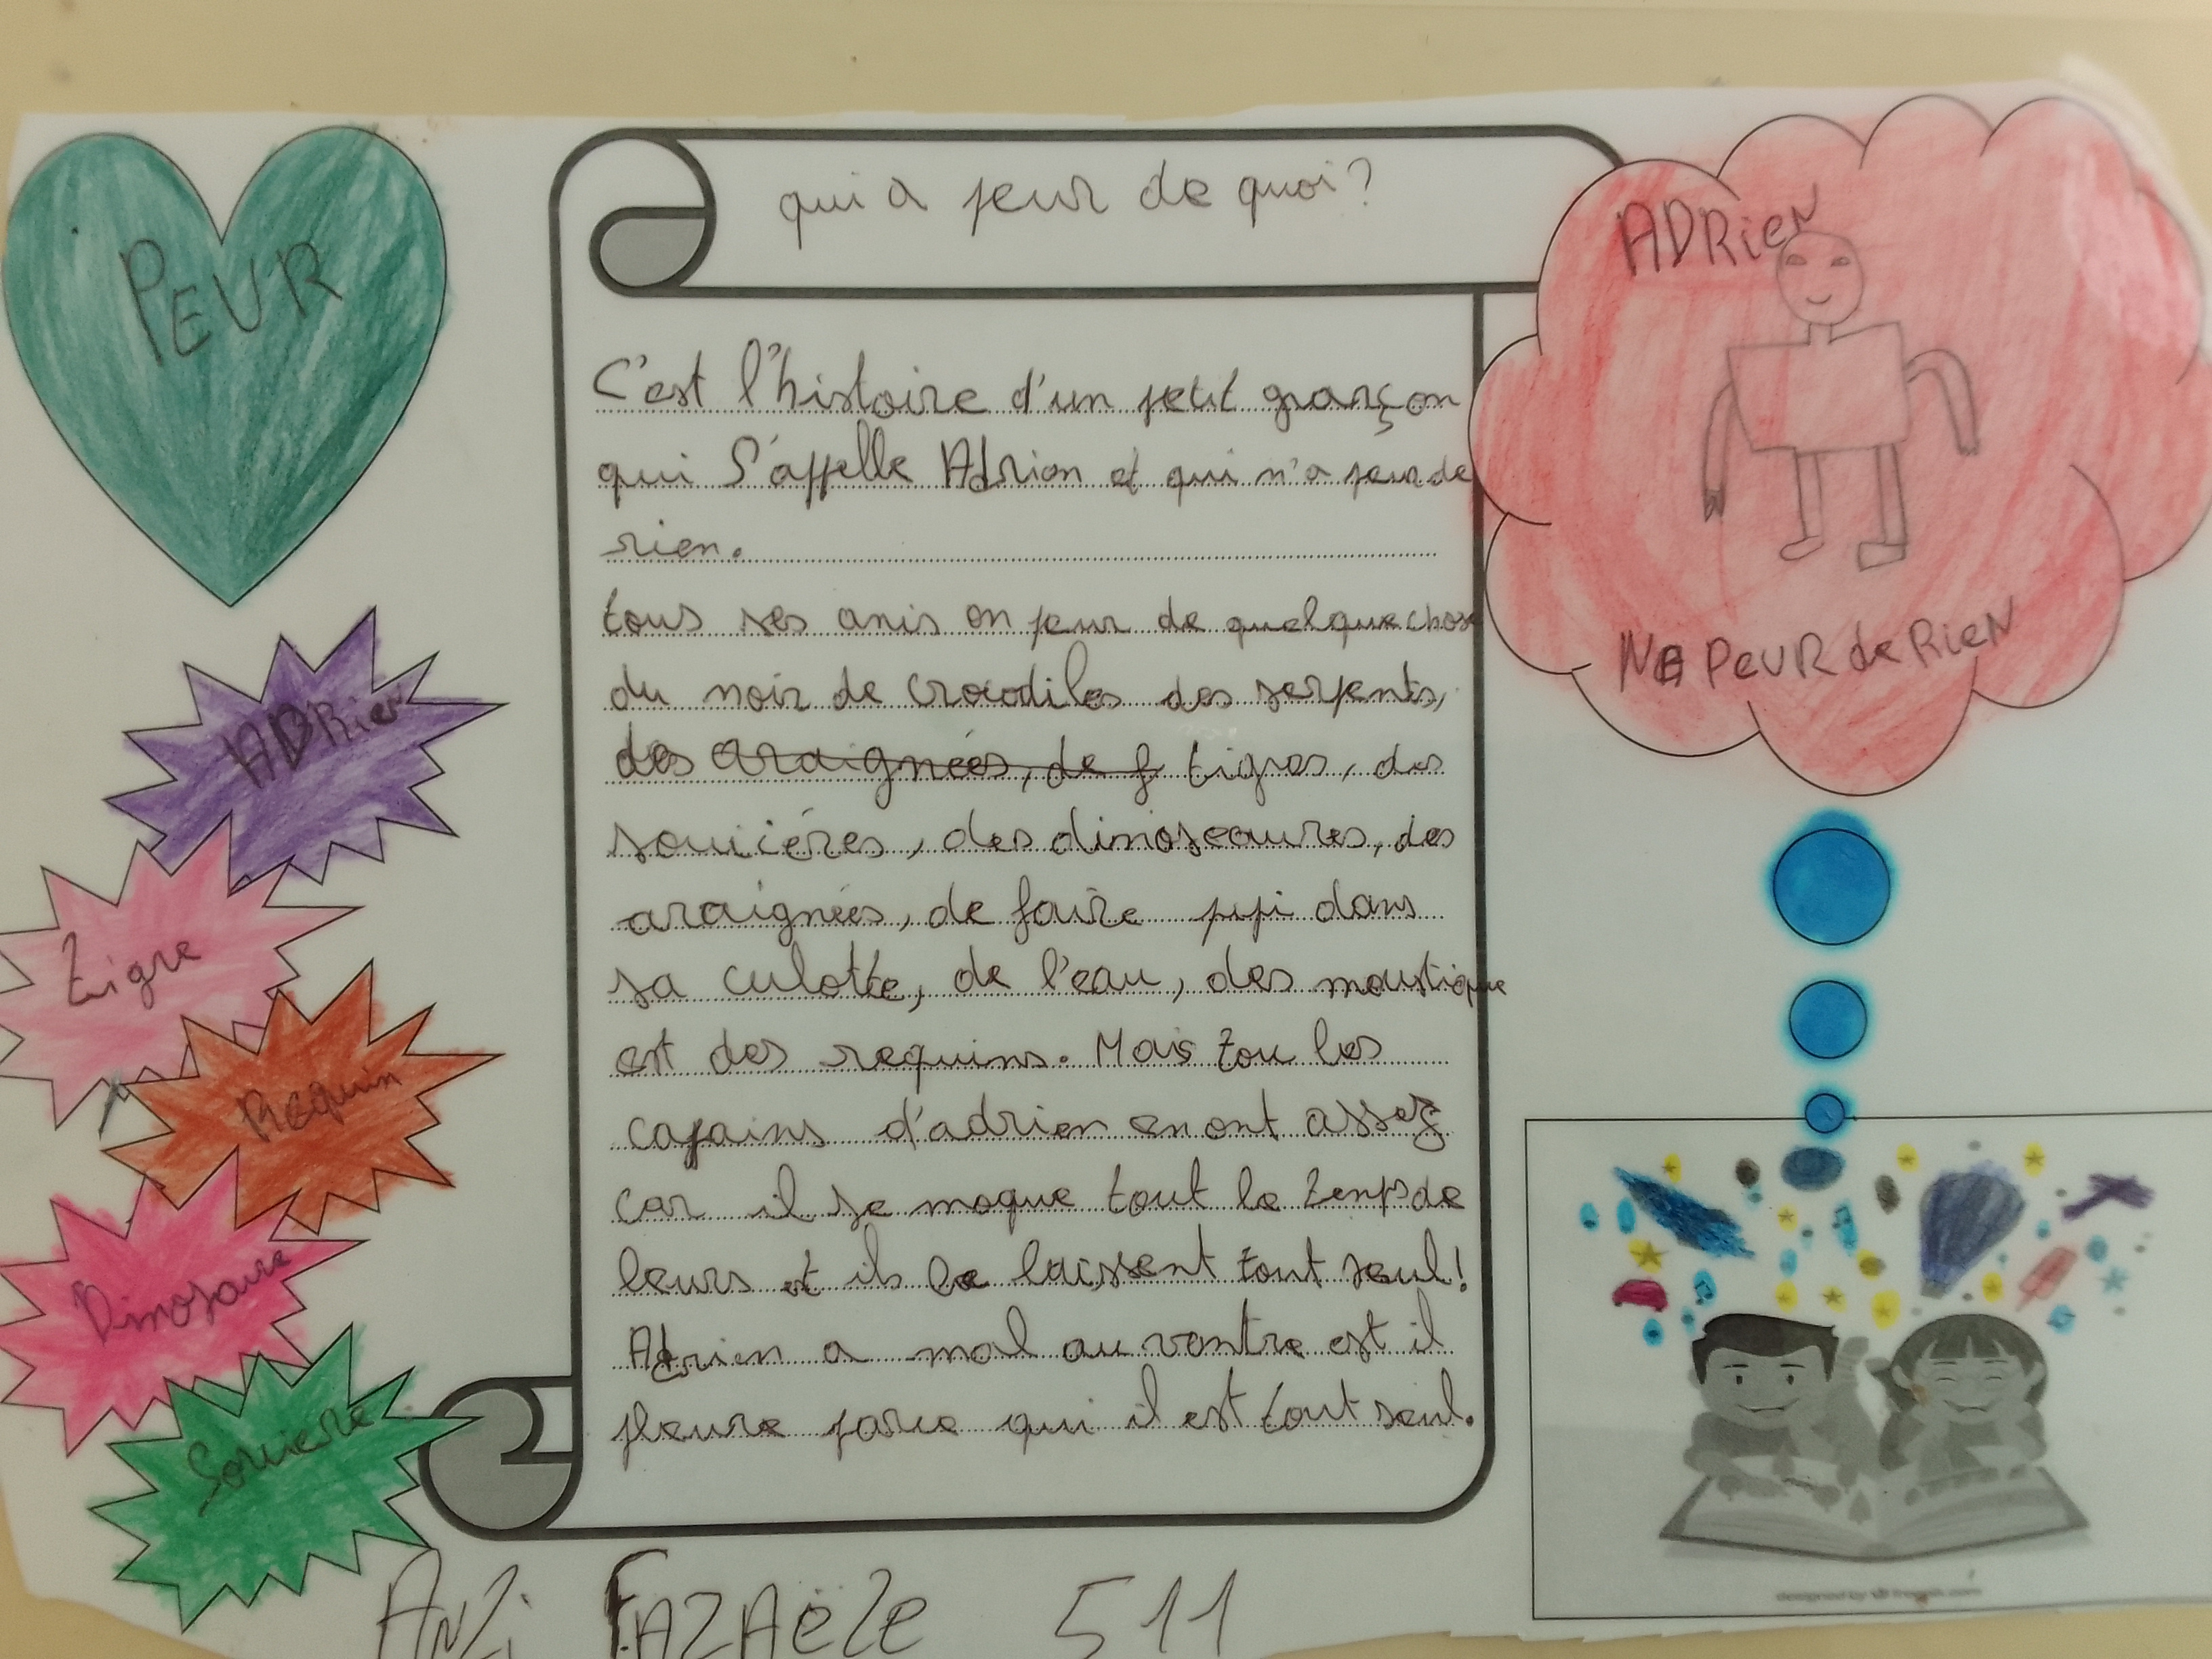 PEUR
qui a peur de quoi?
ADRieN
NA PeUR de RieN
C'est l'histoire d'un petit graçon
qui S'appelle Adrion et qui n'a peur de
rien.
tous ses amis on peur de quelque chose
du noir de crocodiles des serpents,
des araignées, de f tigres, des
sorcières, des dinoseaures, des
araignées, de faire pipi dans
sa culotte, de l'eau, des moustique
est des requins. Mais tou les
copains d'adrien en ont assez
car il se moque tout le temps de
leurs et ils le laissent tout seul!
Adrien a mal au ventre est il
pleure parce qui il est tout seul.
ADRien
Tigre
Requin
Dinosaure
Sorciere
ANZi FAZAËZe 511